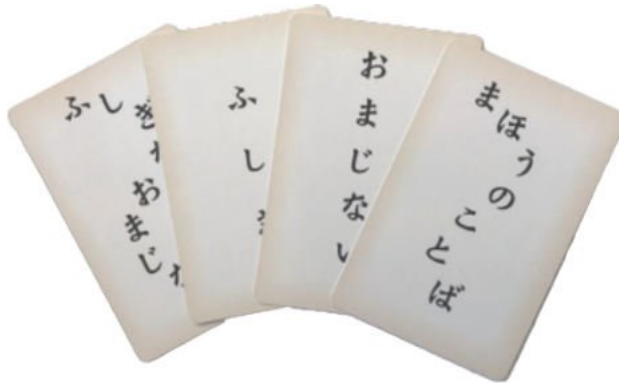 ふしぎなおまじな
ふしぎ
おまじない
まほうのことば